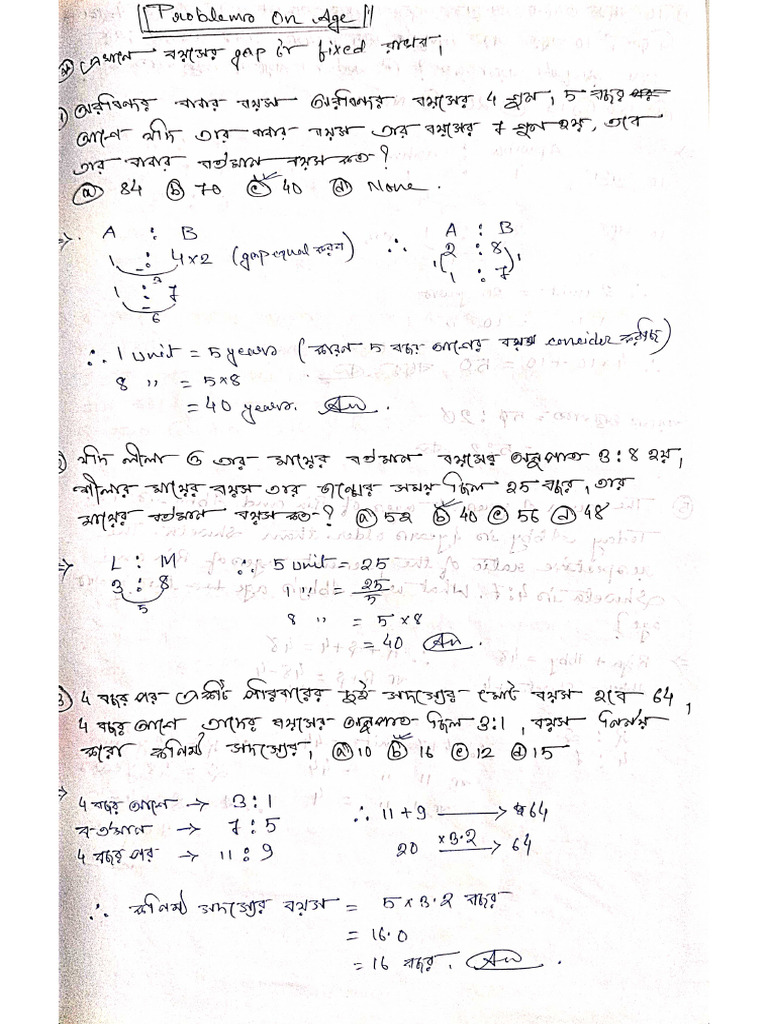 Problems on Age
* এখানে বয়সের gap টা fixed রাখব,
1) অরবিন্দর বাবার বয়স অরবিন্দর বয়সের 4 গুন, 5 বছর
আগে যদি তার বাবার বয়স তার বয়সের 7 গুন হয়, তবে
তার বাবার বর্তমান বয়স কত?
(a) 84 (b) 70 (c) 40 (d) None.
=> A : B ∴ A : B
1 : 4×2 (gap equal করব) 2 : 8
3 1 : 7
1 : 7
6
∴ 1 unit = 5 years (কারন 5 বছর আগের বয়স consider করছি)
8 " = 5×8
= 40 years. Ans.
2) যদি লীলা ও তার মায়ের বর্তমান বয়সের অনুপাত 3:8 হয়,
লীলার মায়ের বয়স তার জন্মের সময় ছিল 25 বছর, তার
মায়ের বর্তমান বয়স কত? (a) 52 (b) 40 (c) 56 (d) 48
=> L : M ∴ 5 unit = 25
3 : 8 1 " = 25/5
5
8 " = 5×8
= 40 Ans.
3) 4 বছর পর একটি পরিবারের দুই সদস্যের মোট বয়স হবে 64,
4 বছর আগে তাদের বয়সের অনুপাত ছিল 3:1, বয়স নির্নয়
করো কনিষ্ঠ সদস্যের, (a) 10 (b) 16 (c) 12 (d) 15
=> 4 বছর আগে → 3:1 ∴ 11+9 → 64
বর্তমান → 7:5
4 বছর পর → 11:9 20 ×3.2 → 64
∴ কনিষ্ঠ সদস্যের বয়স = 5×3.2 বছর
= 16.0
= 16 বছর. Ans.